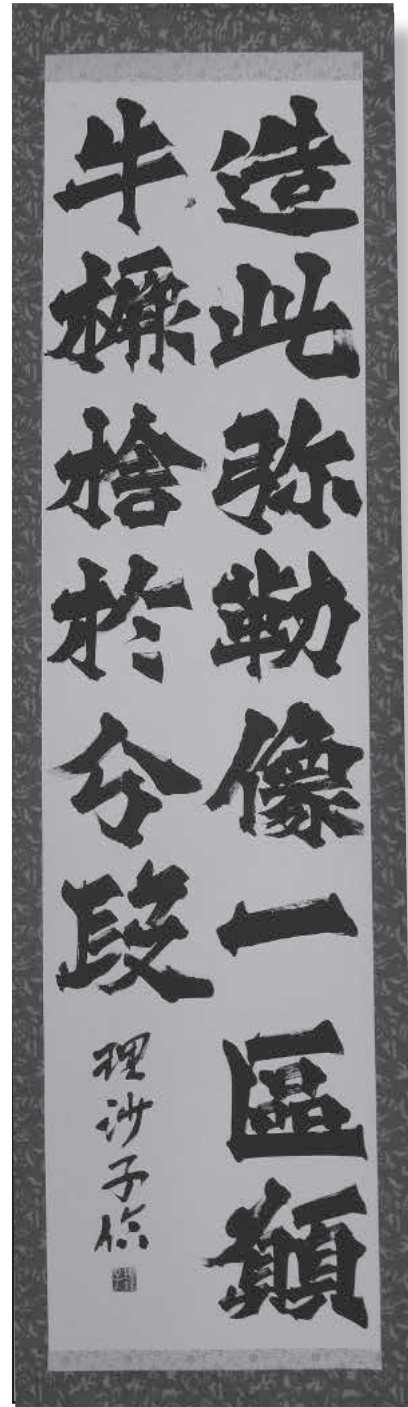 造此弥勒像一區願
牛橛捨於分段
理沙子臨